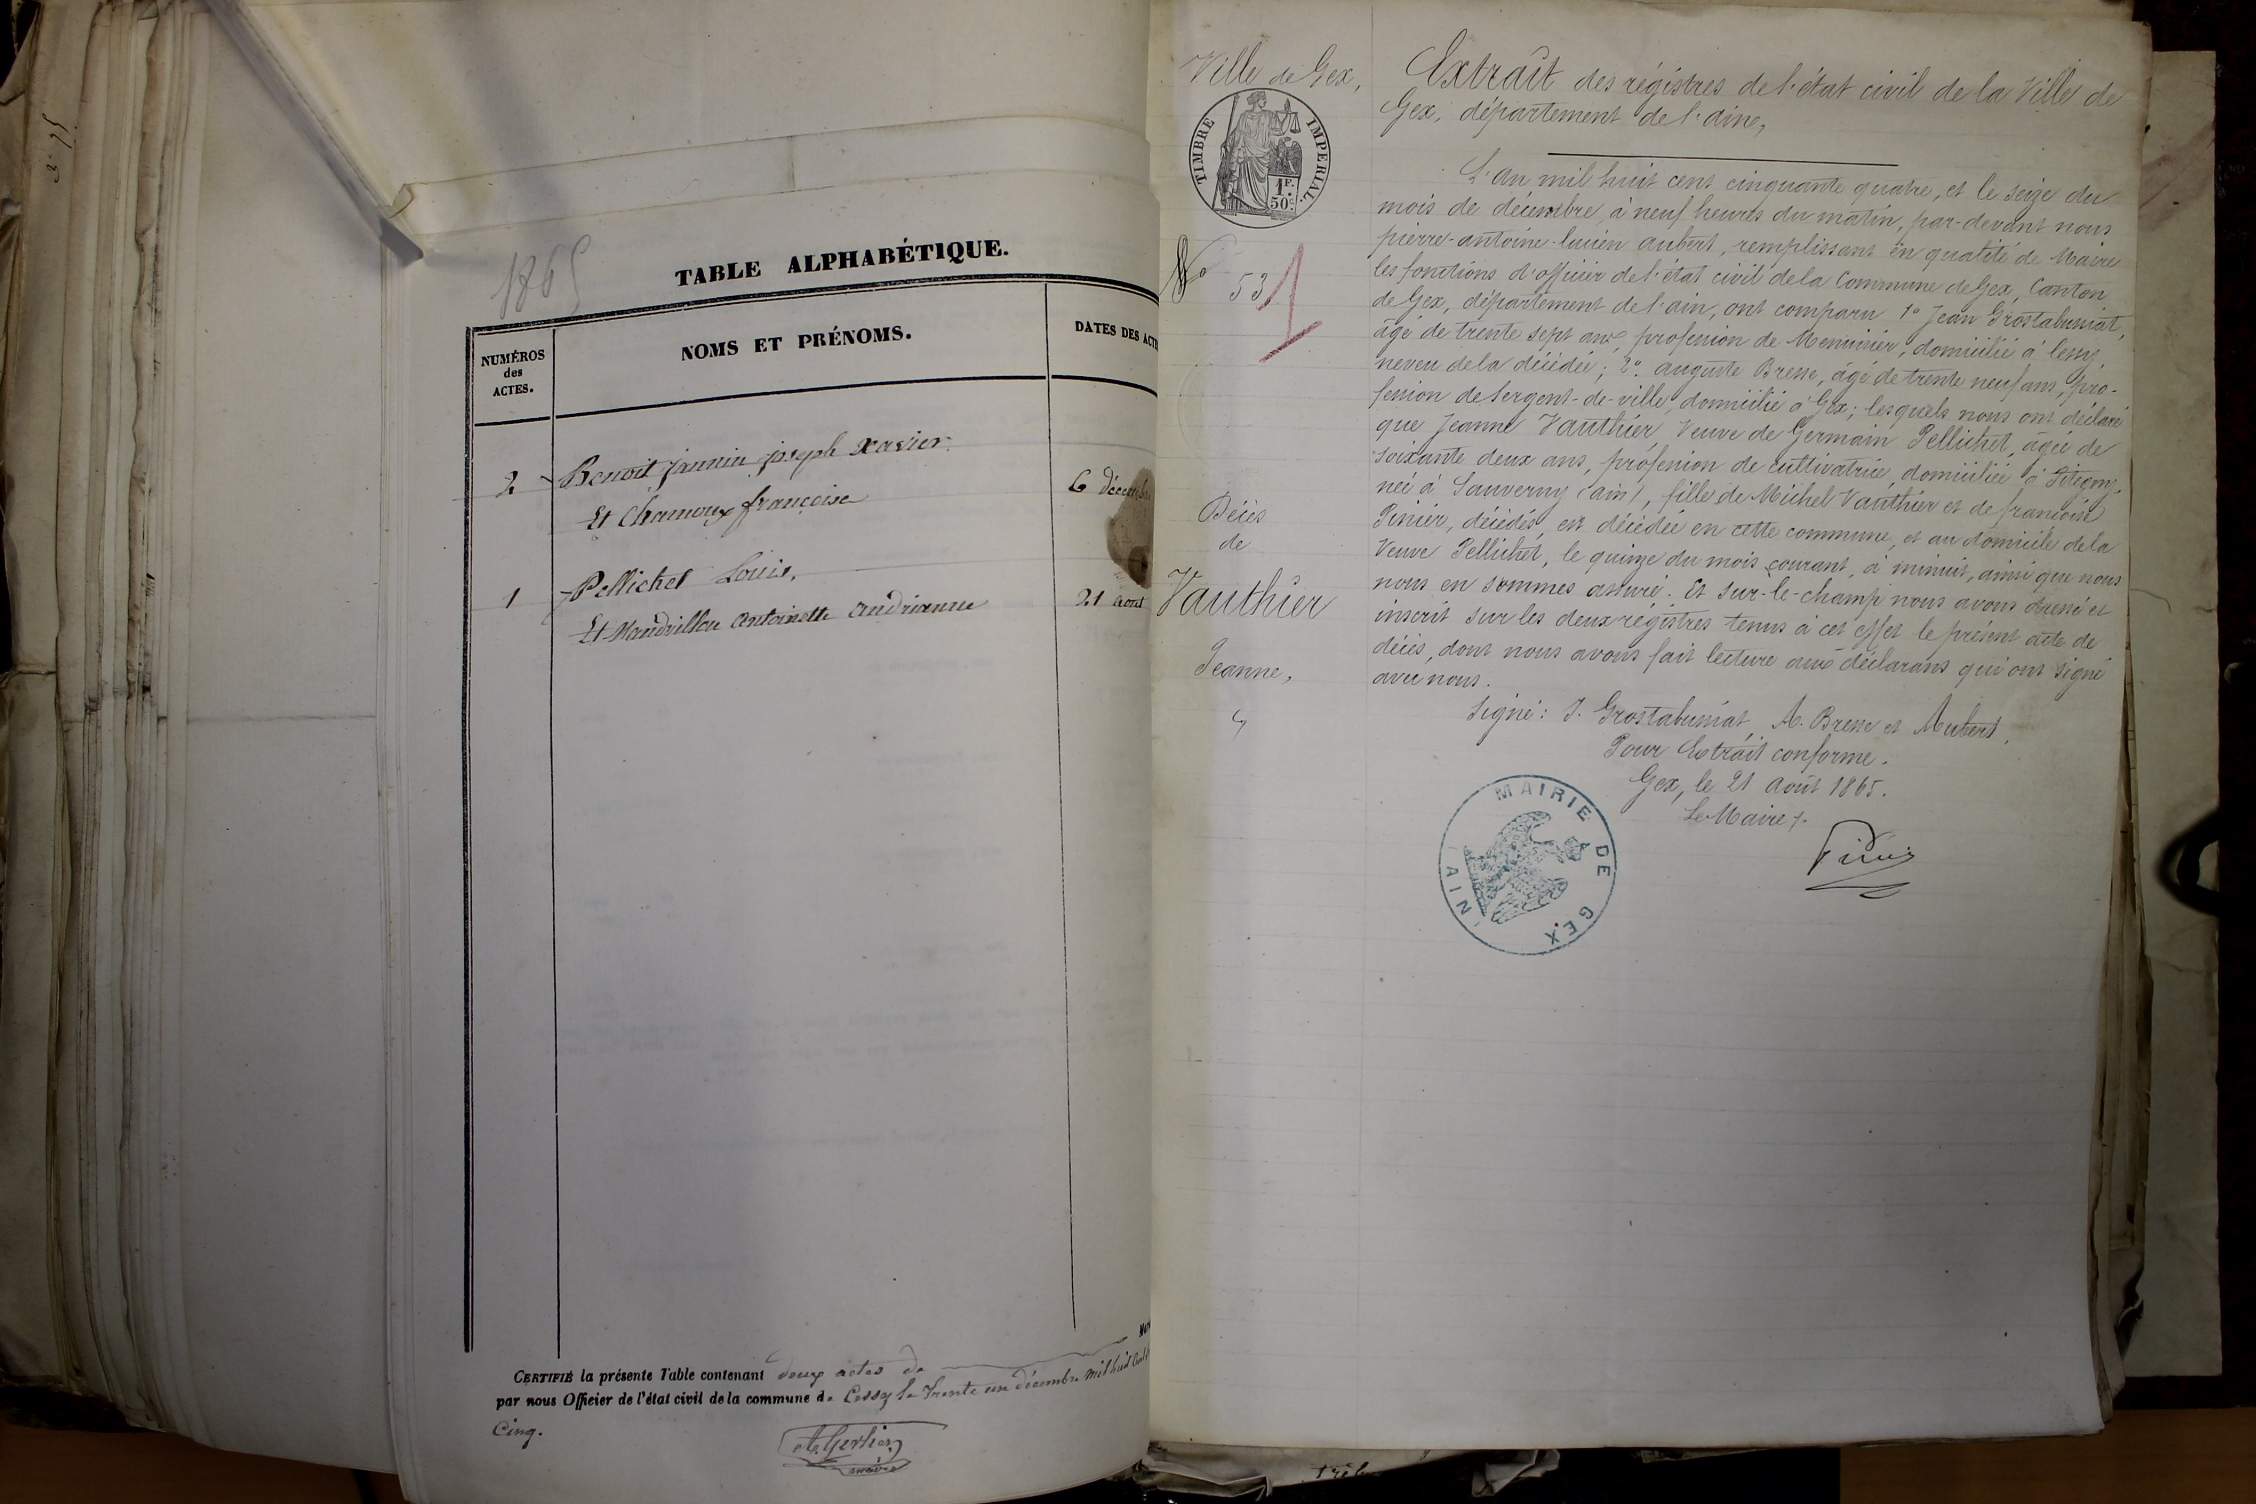 1865
TABLE ALPHABÉTIQUE.
NUMÉROS
des
ACTES.
NOMS ET PRÉNOMS.
DATES DES ACTE
2 Benoit Jannin joseph Xavier
Et Chamoux françoise
6 décembre
1 Pellichet Louis,
Et Mandrillon antoinette andrianne
21 aout
CERTIFIÉ la présente Table contenant deux actes de
par nous Officier de l'état civil de la commune de Cessy le Trente un décembre mil huit cent
Cinq.
Gerlier
maire
Ville de Gex,
TIMBRE IMPERIAL.
1F.
50c.
No 53
1
Décès
de
Vauthier
Jeanne,
Extrait des régistres de l'état civil de la Ville de
Gex, département de l'aine,
L'an mil huit cent cinquante quatre, et le seize du
mois de décembre à neuf heures du matin, par-devant nous
pierre-antoine-lucien aubert, remplissant en qualité de Maire
les fonctions d'officier de l'état civil de la Commune de Gex, Canton
de Gex, département de l'ain, ont comparu 1o Jean Grostabussiat,
âgé de trente sept ans, profession de Menuisier, domicilié à Cessy,
neveu de la décédée; 2o. auguste Bresse, âgé de trente neuf ans, pro-
fession de Sergent-de-ville, domicilié à Gex; lesquels nous ont déclaré
que Jeanne Vauthier, Veuve de Germain Pellichet, âgée de
soixante deux ans, profession de cultivatrice, domiciliée à
née à Sauverny (ain), fille de Michel Vauthier et de francoise
Pinier, décédés, est décédée en cette commune, et au domicile de la
Veuve Pellichet, le quinze du mois courant, à minuit, ainsi que nous
nous en sommes assuré. Et sur-le-champ nous avons dressé et
inscrit sur les deux régistres tenus à cet effet le présent acte de
décès, dont nous avons fait lecture aux déclarans qui ont signé
avec nous.
Signé: J. Grostabussiat, A. Bresse et Aubert,
Pour Extrait conforme.
Gex, le 21 Août 1865.
Le Maire,
MAIRIE DE GEX
AIN